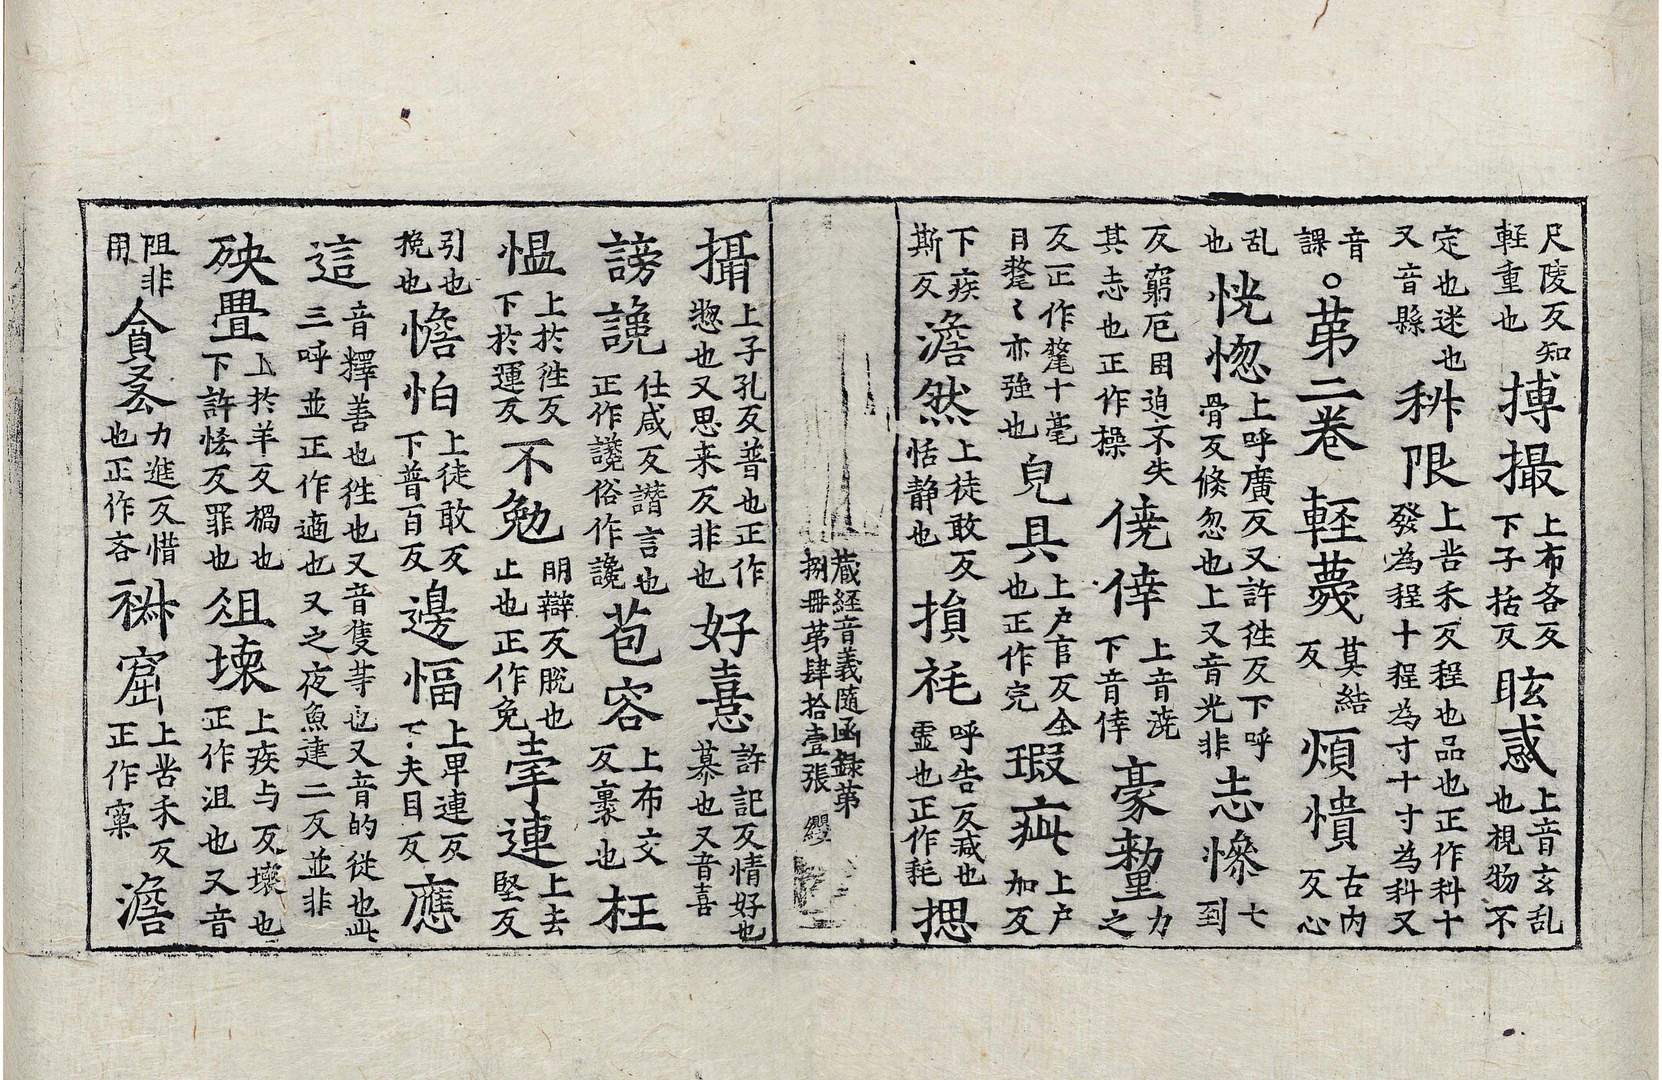 尺陵反知輕重也搏撮上布各反下子括反眩惑上音玄乱也視物不
定也迷也又音縣秤限上苦禾反程也品也正作科十發為程十程為寸十寸為科又
音課○苐二卷輕薎莫結反煩憒古内反心
乱也恍惚上呼廣反又許往反下呼骨反倏忽也上又音光非志慘七到
反窮厄困迫不失其志也正作操僥倖上音澆下音倖豪勑力之
反正作氂十毫曰氂〻亦強也皃具上户官反全也正作完瑕疵上户加反
下疾斯反澹然上徒敢反恬静也損秏呼告反减也霊也正作耗揌
藏経音義随函録苐捌冊苐肆拾壹張 纓
攝上子孔反普也正作惣也又思来反非也好憙許記反情好也慕也又音喜
謗讒仕咸反譛言也正作讒俗作讒苞容上布交反裹也枉
愠上於往反下於運反不勉明辯反脱也止也正作免牽連上去堅反
引也挽也憺怕上徒敢反下普百反邊幅上甲連反下夫目反應
這音釋善也往也又音隻䓁也又音的従也此三呼並正作適也又之夜魚建二反並非
殃疊上於羊反禍也下許恡反罪也俎壊上疾与反壞也正作沮也又音
阻非用貪忞力進反惜也正作吝秝窟上苦禾反正作窠澹